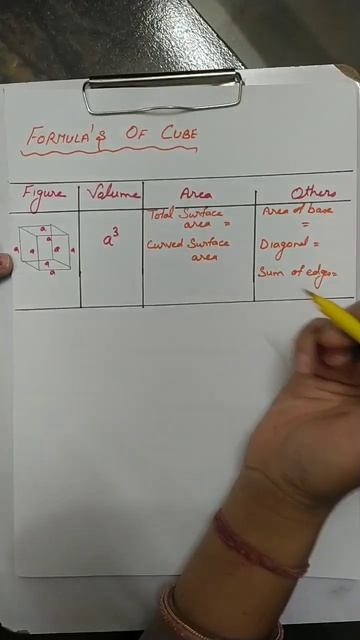 FORMULA'S OF CUBE
Figure Volume Area Others
a a a a a a a a a
a³
Total Surface
area =
Curved Surface
area
Area of base
=
Diagonal =
Sum of edges=